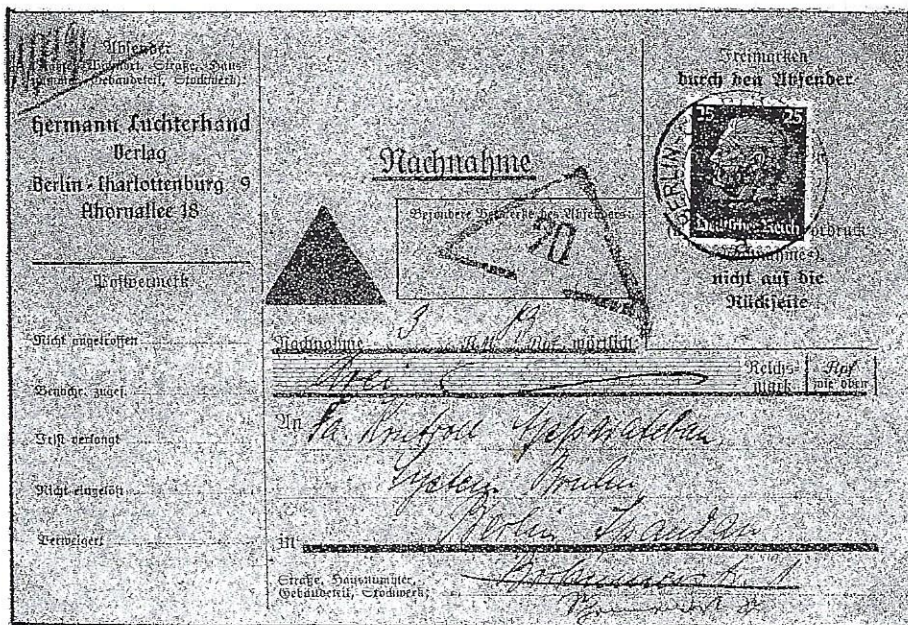 Absender
Wohnort, Straße, Haus-
nummer, Gebäudeteil, Stockwerk:
Hermann Luchterhand
Verlag
Berlin-Charlottenburg 9
Ahornallee 18
Postvermerk
Nicht angetroffen
Benachr. zugef.
Frist verlangt
Nicht eingelöst
Verweigert
Nachnahme
Besondere Vermerke des Absenders:
Freimarken
durch den Absender
25 25
Deutsches Reich
BERLIN-
nicht auf die
Rückseite
Nachnahme 3 RM 19 Rpf, wörtlich:
Drei
Reichs-
mark
Rpf
wie oben
An Fa. Kontroll Apparatebau
System
in Berlin Spandau
Straße, Hausnummer,
Gebäudeteil, Stockwerk: